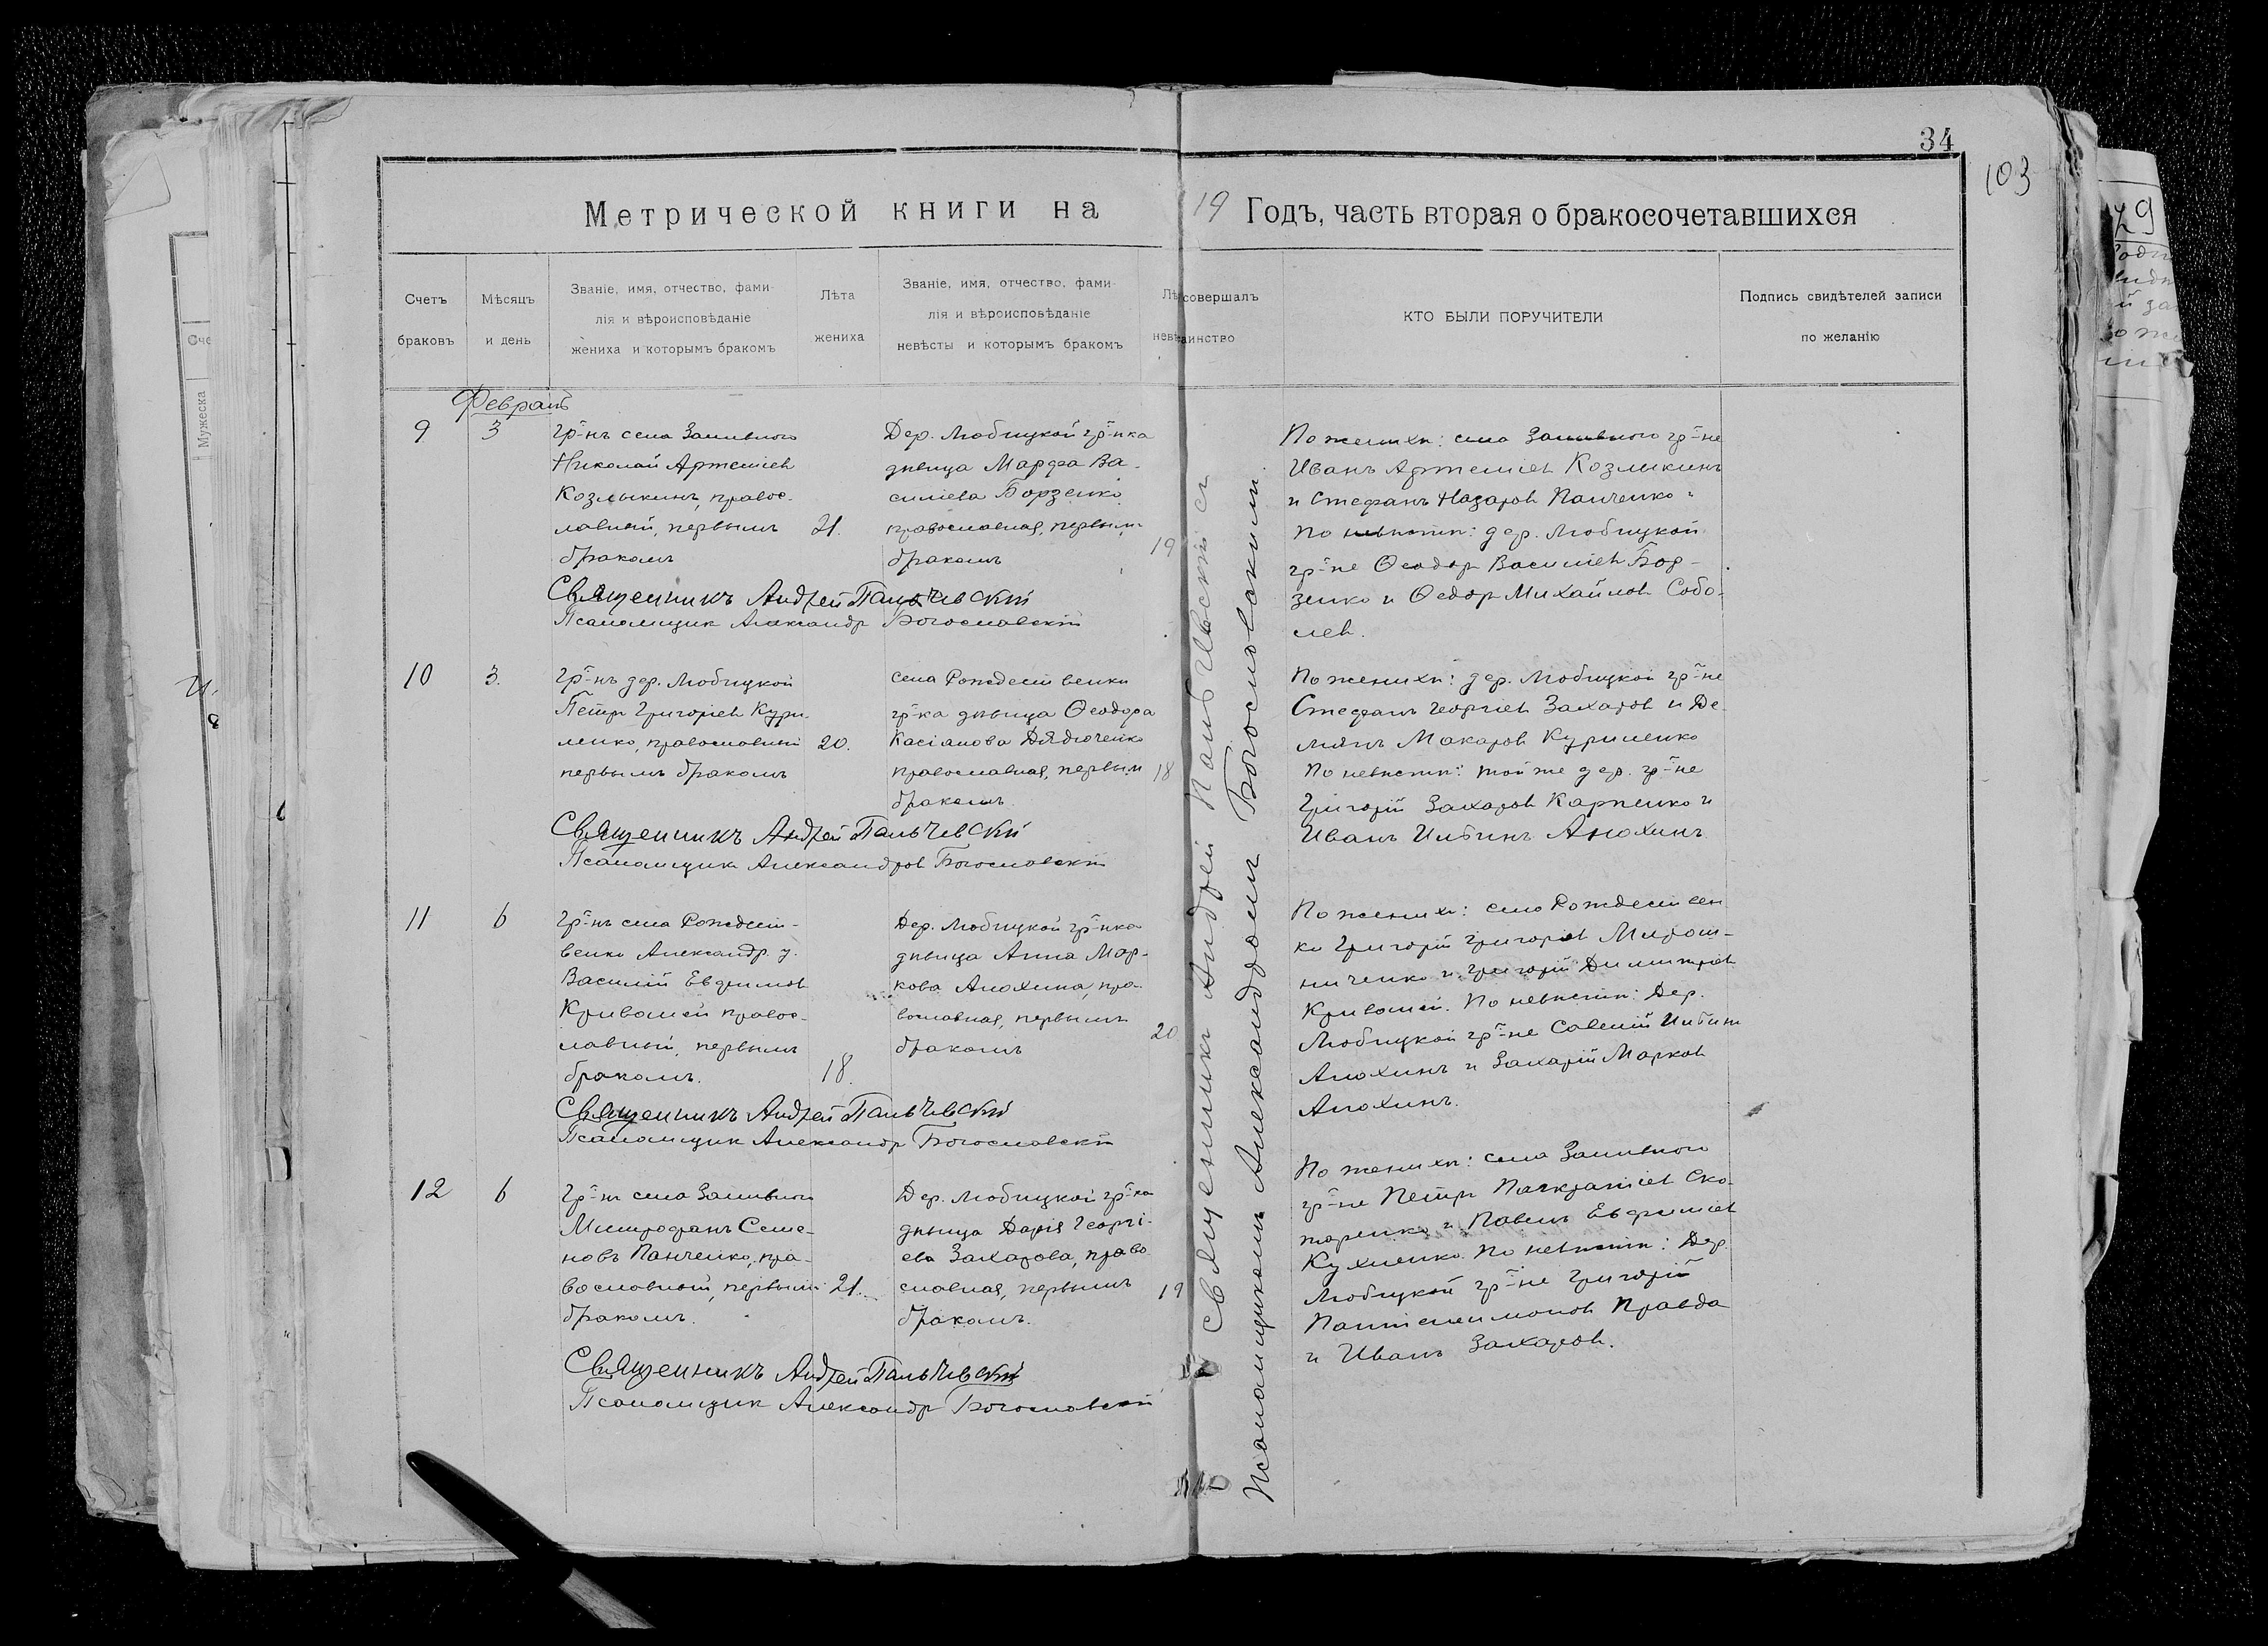 34
103
Метрической книги на 19 Годъ, часть вторая о бракосочетавшихся
Счетъ
браковъ
Мѣсяцъ
и день
Званіе, имя, отчество, фами-
лія и вѣроисповѣданіе
жениха и которымъ бракомъ
Лѣта
жениха
Званіе, имя, отчество, фами-
лія и вѣроисповѣданіе
невѣсты и которымъ бракомъ
Лѣ
невѣ
совершалъ
аинство
КТО БЫЛИ ПОРУЧИТЕЛИ
Подпись свидѣтелей записи
по желанію
Февраль
9
3
гр-нъ села
Николай Артеміев
Козлыкинъ, правос-
лавный, первымъ
бракомъ
21.
Дер. Любицкой гр-нка
дѣвица Марфа Ва-
силіева Борзенко
православная, первым
бракомъ
19
По женихѣ: села гр-не
Иванъ Артеміев Козлыкинъ
и Стефанъ Назаров Панченко
по невѣстѣ: дер. Любицкой
гр-не Ѳеодор Василіев Бор-
зенко и Ѳедор Михайлов Собо-
лев.
Священникъ Андрей Пальчевскій
Псаломщик Александр Богословскій
10
3.
Гр-нъ дер. Любицкой
Петръ Григоріев Кури-
ленко, православный
первымъ бракомъ
20.
села Рождественки
гр-ка дѣвица Ѳеодора
Касіанова Дядюченко
православная, первым
бракомъ
18
По женихѣ: дер. Любицкой гр-не
Стефанъ Георгіев Захаров и Де-
міянъ Макаров Куриленко
По невѣстѣ: той же дер. гр-не
Григорій Захаров Карпенко и
Иванъ Ильинъ Анохинъ.
Священникъ Андрей Пальчевскій
Псаломщик Александров Богословскій
11
6
Гр-нъ села Рождест-
венко Александр. у.
Василій Евфимов
Кривошей правос-
лавный, первымъ
бракомъ.
18.
Дер. Любицкой гр-нка
дѣвица Анна Мар-
кова Анохина, пра-
вославная, первымъ
бракомъ
20
По женихѣ: села Рождествен
ко Григорій Григоріев Мирош-
ниченко и Григорій Димитріев
Кривошей. По невѣстѣ: Дер.
Любицкой гр-не Савелій Ильин
Анохинъ и Захарій Марков
Анохинъ.
Священникъ Андрей Пальчевскій
Псаломщик Александр Богословскій
12
6
Гр-нъ села
Митрофанъ Семе-
новъ Панченко, пра-
вославный, первым
бракомъ.
21.
Дер. Любицкой гр-ка
дѣвица Дарія Георгі-
ева Захарова, право
славная, первымъ
бракомъ.
19
По женихѣ: села
гр-не Петръ Панкратіев Ско-
торенко и Павелъ Евфиміев
Кухленко. По невѣстѣ: Дер.
Любицкой гр-не Григорій
Пантелеимонов Правда
и Иванъ Захаров.
Священникъ Андрей Пальчевскій
Псаломщик Александр Богословскій
Священникъ Андрей Пальчевскій съ
Псаломщикомъ Александромъ Богословскимъ.
Сче
Мужеска